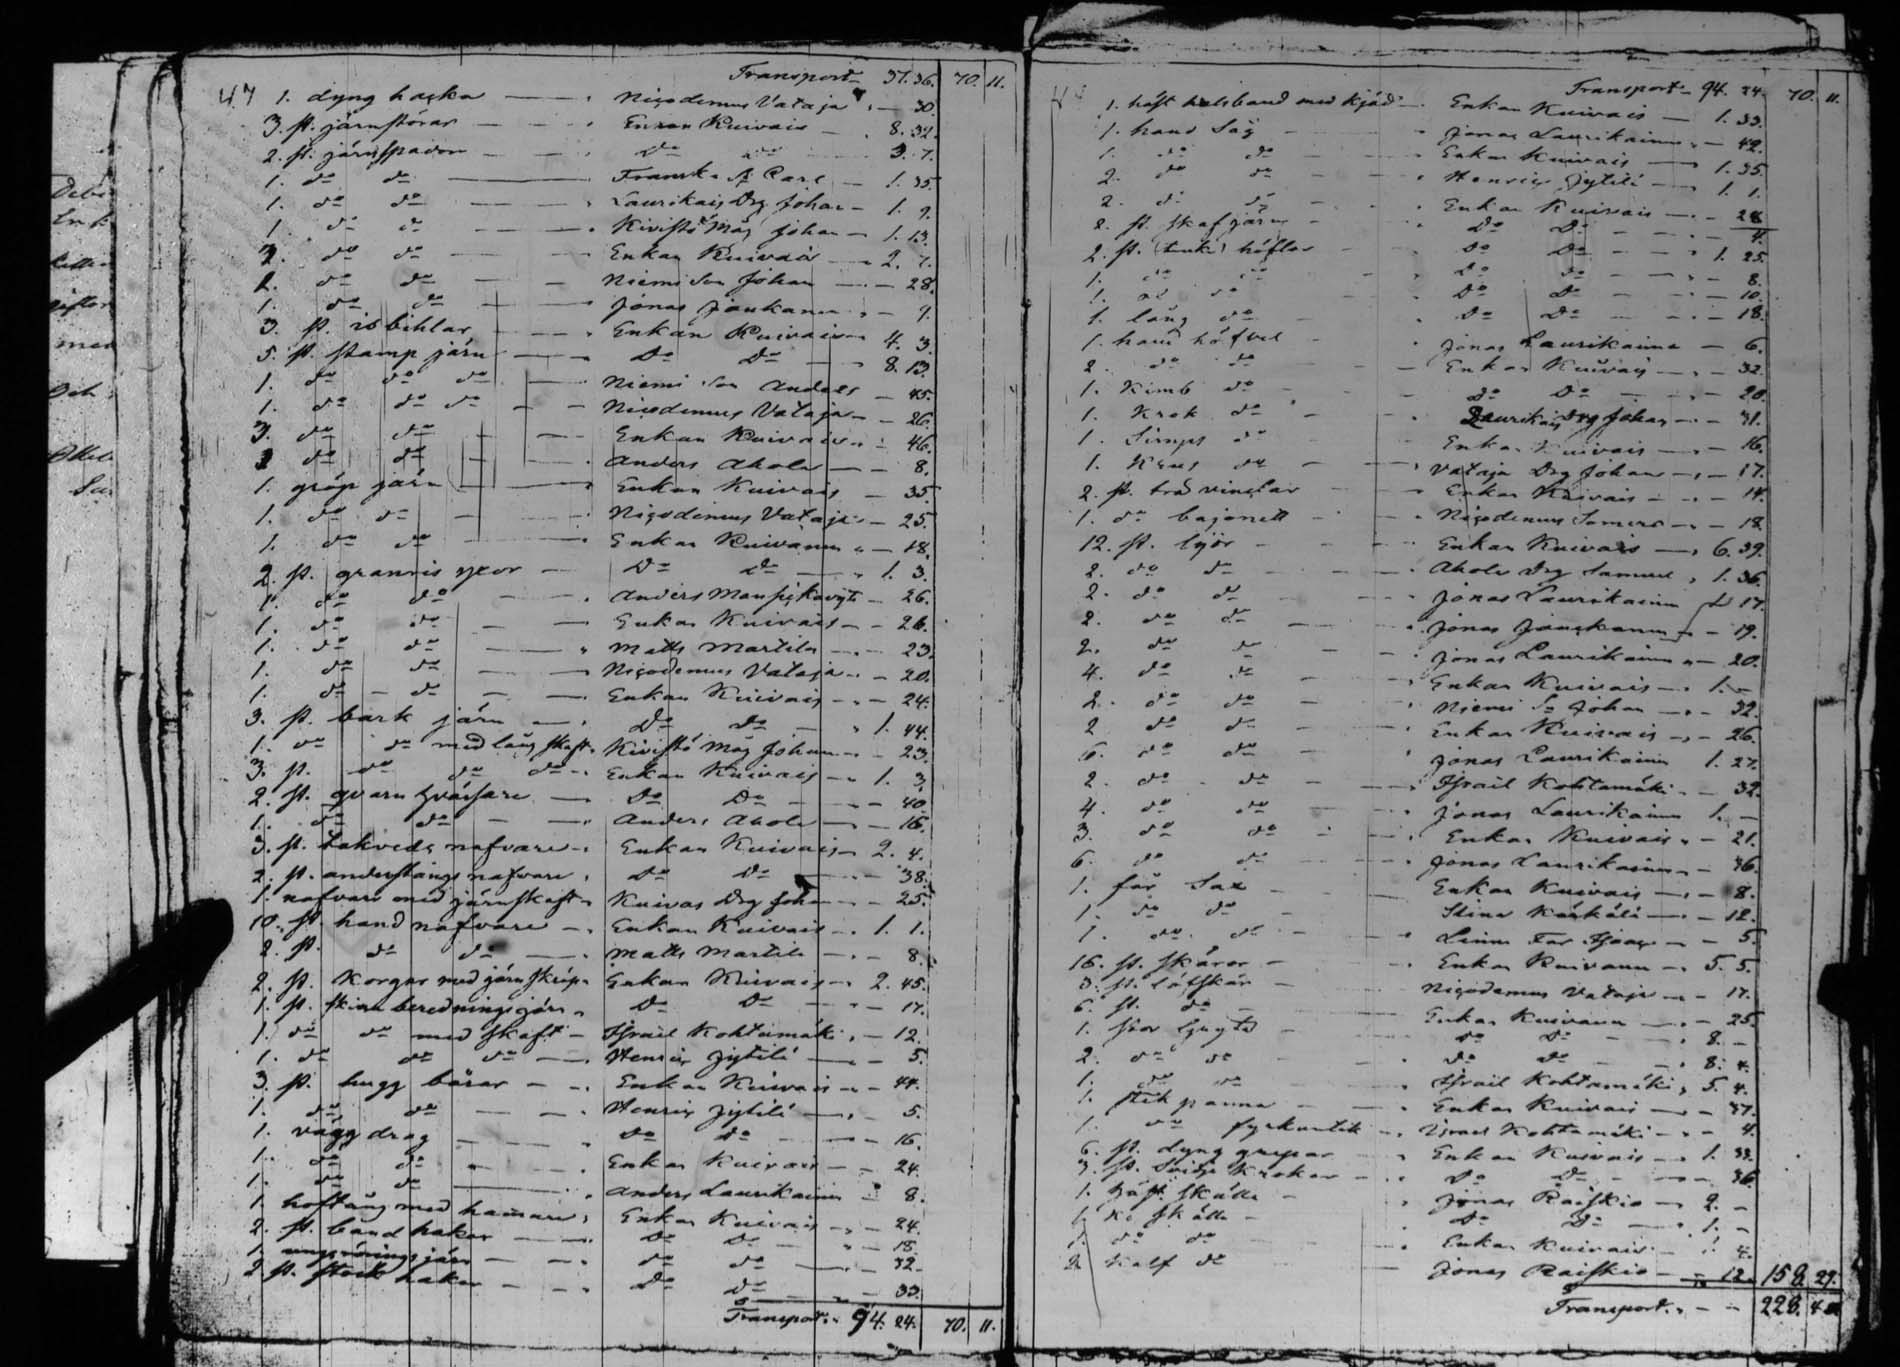 Transport 37. 36. 70. 11.
47 1. dyng hacka Nicodemus Vataja 30.
3. st. järnstörar Enkan Kuivais 8. 32.
2. st. järnspador Do 3. 7.
1. do do Carl 1. 35.
1. do do Laurikais Drg Johan 1. 9.
1. do do Kivistö Måg Johan 1. 13.
do do Enkan Kuivais 2. 7.
do do Niemi Son Johan 28.
1. do do Jonas 9.
3. st. isbihlar Enkan Kuivais 4. 3.
5. st. stamp järn Do Do 8. 13.
1. do do do Niemi Son Anders 45.
1. do do do Nicodemus Vataja 26.
3. do do Enkan Kuivais 46.
do do Anders Ahola 8.
1. gröp järn Enkan Kuivais 35.
1. do do Nicodemus Vataja 25.
1. do do Enkan Kuivanen 18.
2. st. granris yxor Do Do 1. 3.
1. do do Anders 26.
1. do do Enkan Kuivais 26.
1. do do Matts Martila 23.
1. do do Nicodemus Vataja 20.
1. do do Enkan Kuivais 24.
3. st. bark järn Do Do 1. 44.
1. do do med lång skaft Kivistö Måg Johan 23.
3. st. do do do Enkan Kuivais 1. 3.
2. st. qvarn Do Do 40.
1. do do Anders Ahola 16.
3. st. takveds nafvare Enkan Kuivais 2. 4.
2. st. nafvare Do Do 38.
1. nafvare med järnskaft Kuivas Drg Johan 25.
10. st. hand nafvare Enkan Kuivais 1. 1.
2. st. do do Matts Martila 8.
2. st. Korgar med Enkan Kuivais 2. 45.
1. st. skinn beredningsjärn Do Do 17.
1. do do med skaft Israil Kohtamäki 12.
1. do do do Henric Jytilä 5.
3. st. hugg bårar Enkan Kuivais 44.
1. do do Henric Jytilä 5.
1. vägg drag Do Do 16.
1. do do Enkan Kuivais 24.
1. do do Anders Laurikainen 8.
1. hoftång med hamare Enkan Kuivais 24.
2. st. band hakar Do Do 18.
1. järn do do 32.
2. st. stock hakar Do Do 33.
Transport 94. 24. 70. 11.
Transport 94. 24. 70. 11.
1. häst halsband med kjäd Enkan Kuivais 1. 33.
1. hand Såg Jonas Laurikainen 42.
1. do do Enkan Kuivais 1. 35.
2. do do Henric Jytilä 1. 1.
2. do do Enkan Kuivais 28.
2. st. skafjärn Do Do 4.
2. st. höflar Do Do 1. 25.
1. do do Do do 8.
1. do Do Do 10.
1. lång do Do Do 18.
1. hand höfvel Jonas Laurikainen 6.
2. do do Enkan Kuivais 32.
1. Kimb do Do Do 20.
1. Krok do Laurikais Drg Johan 31.
1. Simps do Enkan Kuivais 16.
1. do Vataja Drg Johan 17.
2. st. trä vinclar Enkan Kuivais 14.
1. do bajonett Nicodemus Somero 18.
12. st. lijör Enkan Kuivais 6. 39.
2. do do Ahola Drg Samuel 1. 36.
2. do do Jonas Laurikainen 17.
2. do do Jonas 19.
2. do do Jonas Laurikainen 20.
4. do do Enkan Kuivais 1. –
2. do do Niemi So Johan 32.
2 do do Enkan Kuivais 26.
6. do do Jonas Laurikainen 1. 27.
2. do do Israil Kohtamäki 32.
4. do do Jonas Laurikainen 1. –
3. do do Enkan Kuivais 21.
6. do do Jonas Laurikainen 36.
1. får Sax Enkan Kuivais 8.
1. do do Stina 12.
1. do do 5.
16. st. skäror Enkan Kuivanen 5. 5.
st. löfskär Nicodemus Vataja 17.
6. st. do Enkan Kuivanen 25.
1. stor Gryta do Do 8. –
2. do do do Do 8. 4.
1. do do Israil Kohtamäki 5. 4.
1. stek panna Enkan Kuivais 37.
1. do fyrkantik Israel Kohtamäki 4.
6. st. dyng grepar Enkan Kuivais 1. 33.
st. krokar Do Do 36.
1. häst skälla Jonas Raiskio 2. –
1. Ko skälla Do Do 1. –
1. do do Enkan Kuivais 4.
2 Kalf do Jonas Raiskio 12. 158. 29.
Transport 228. 40.